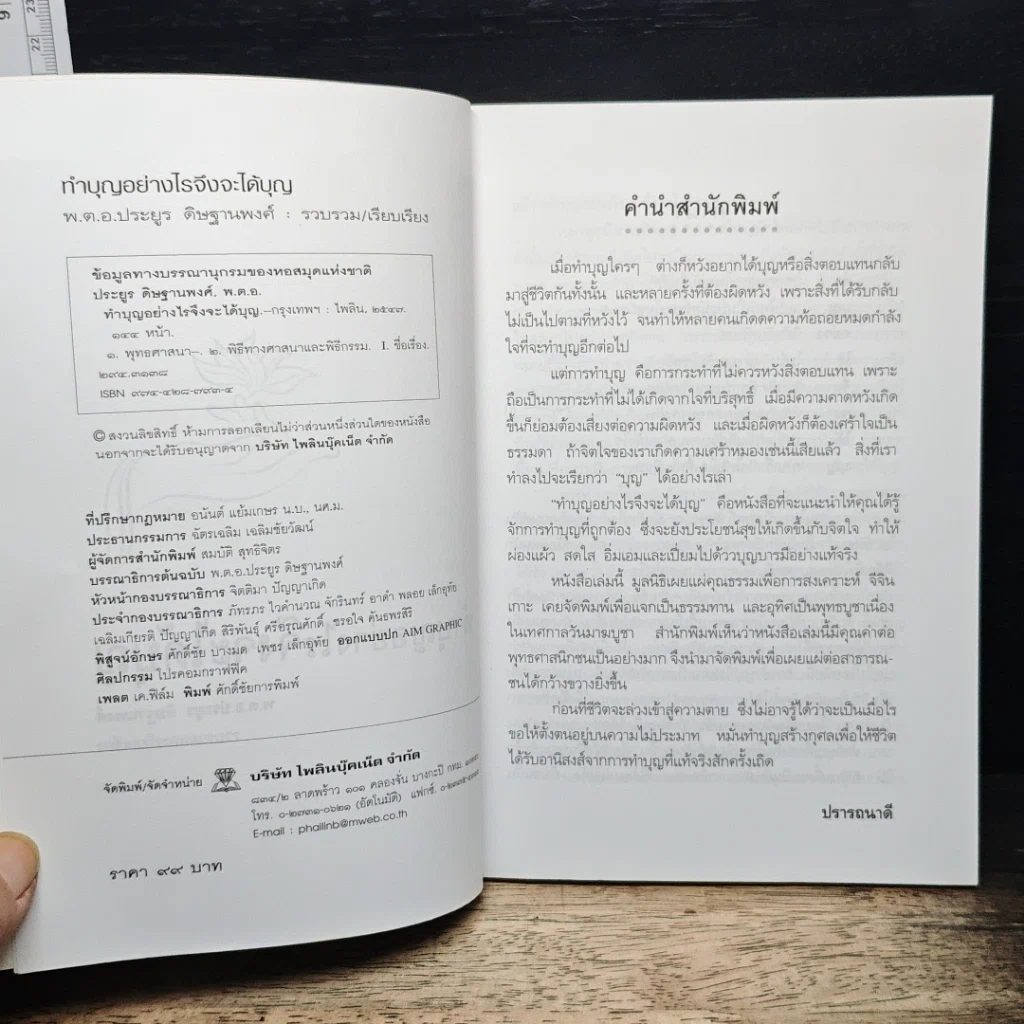 9
23
22
ทำบุญอย่างไรจึงจะได้บุญ
พ.ต.อ.ประยูร ดิษฐานพงศ์ : รวบรวม/เรียบเรียง
ข้อมูลทางบรรณานุกรมของหอสมุดแห่งชาติ
ประยูร ดิษฐานพงศ์, พ.ต.อ.
ทำบุญอย่างไรจึงจะได้บุญ.–กรุงเทพฯ : ไพลิน, ๒๕๔๗.
๑๔๔ หน้า.
๑. พุทธศาสนา–. ๒. พิธีทางศาสนาและพิธีกรรม. I. ชื่อเรื่อง.
๒๙๔.๓๑๓๘
ISBN ๙๗๔-๔๒๘-๗๙๓-๕
© สงวนลิขสิทธิ์ ห้ามการลอกเลียนไม่ว่าส่วนหนึ่งส่วนใดของหนังสือ
นอกจากจะได้รับอนุญาตจาก บริษัท ไพลินบุ๊คเน็ต จำกัด
ที่ปรึกษากฎหมาย อนันต์ แย้มเกษร น.บ., นศ.ม.
ประธานกรรมการ ฉัตรเฉลิม เฉลิมชัยวัฒน์
ผู้จัดการสำนักพิมพ์ สมบัติ สุทธิจิตร
บรรณาธิการต้นฉบับ พ.ต.อ.ประยูร ดิษฐานพงศ์
หัวหน้ากองบรรณาธิการ จิตติมา ปัญญาเกิด
ประจำกองบรรณาธิการ ภัทรภร ไวคำนวณ จักรินทร์ อาดำ พลอย เล็กอุทัย
เฉลิมเกียรติ ปัญญาเกิด สิริพันธุ์ ศรีอรุณศักดิ์ ชรอใจ คันธพรสิริ
พิสูจน์อักษร ศักดิ์ชัย บางมด เพชร เล็กอุทัย ออกแบบปก AIM GRAPHIC
ศิลปกรรม โปรคอมกราฟฟิค
เพลต เค.ฟิล์ม พิมพ์ ศักดิ์ชัยการพิมพ์
จัดพิมพ์/จัดจำหน่าย บริษัท ไพลินบุ๊คเน็ต จำกัด
๘๓๔/๒ ลาดพร้าว ๑๐๑ คลองจั่น บางกะปิ กทม
โทร. ๐-๒๗๓๑-๐๖๒๑ (อัตโนมัติ) แฟกซ์.
E-mail : phailinb@mweb.co.th
ราคา ๙๙ บาท
คำนำสำนักพิมพ์
เมื่อทำบุญใครๆ ต่างก็หวังอยากได้บุญหรือสิ่งตอบแทนกลับ
มาสู่ชีวิตกันทั้งนั้น และหลายครั้งที่ต้องผิดหวัง เพราะสิ่งที่ได้รับกลับ
ไม่เป็นไปตามที่หวังไว้ จนทำให้หลายคนเกิดดความท้อถอยหมดกำลัง
ใจที่จะทำบุญอีกต่อไป
แต่การทำบุญ คือการกระทำที่ไม่ควรหวังสิ่งตอบแทน เพราะ
ถือเป็นการกระทำที่ไม่ได้เกิดจากใจที่บริสุทธิ์ เมื่อมีความคาดหวังเกิด
ขึ้นก็ย่อมต้องเสี่ยงต่อความผิดหวัง และเมื่อผิดหวังก็ต้องเศร้าใจเป็น
ธรรมดา ถ้าจิตใจของเราเกิดความเศร้าหมองเช่นนี้เสียแล้ว สิ่งที่เรา
ทำลงไปจะเรียกว่า "บุญ" ได้อย่างไรเล่า
"ทำบุญอย่างไรจึงจะได้บุญ" คือหนังสือที่จะแนะนำให้คุณได้รู้
จักการทำบุญที่ถูกต้อง ซึ่งจะยังประโยชน์สุขให้เกิดขึ้นกับจิตใจ ทำให้
ผ่องแผ้ว สดใส อิ่มเอมและเปี่ยมไปด้วบุญบารมีอย่างแท้จริง
หนังสือเล่มนี้ มูลนิธิเผยแผ่คุณธรรมเพื่อการสงเคราะห์ จีจิน
เกาะ เคยจัดพิมพ์เพื่อแจกเป็นธรรมทาน และอุทิศเป็นพุทธบูชาเนื่อง
ในเทศกาลวันมาฆบูชา สำนักพิมพ์เห็นว่าหนังสือเล่มนี้มีคุณค่าต่อ
พุทธศาสนิกชนเป็นอย่างมาก จึงนำมาจัดพิมพ์เพื่อเผยแผ่ต่อสาธารณ-
ชนได้กว้างขวางยิ่งขึ้น
ก่อนที่ชีวิตจะล่วงเข้าสู่ความตาย ซึ่งไม่อาจรู้ได้ว่าจะเป็นเมื่อไร
ขอให้ตั้งตนอยู่บนความไม่ประมาท หมั่นทำบุญสร้างกุศลเพื่อให้ชีวิต
ได้รับอานิสงส์จากการทำบุญที่แท้จริงสักครั้งเถิด
ปรารถนาดี